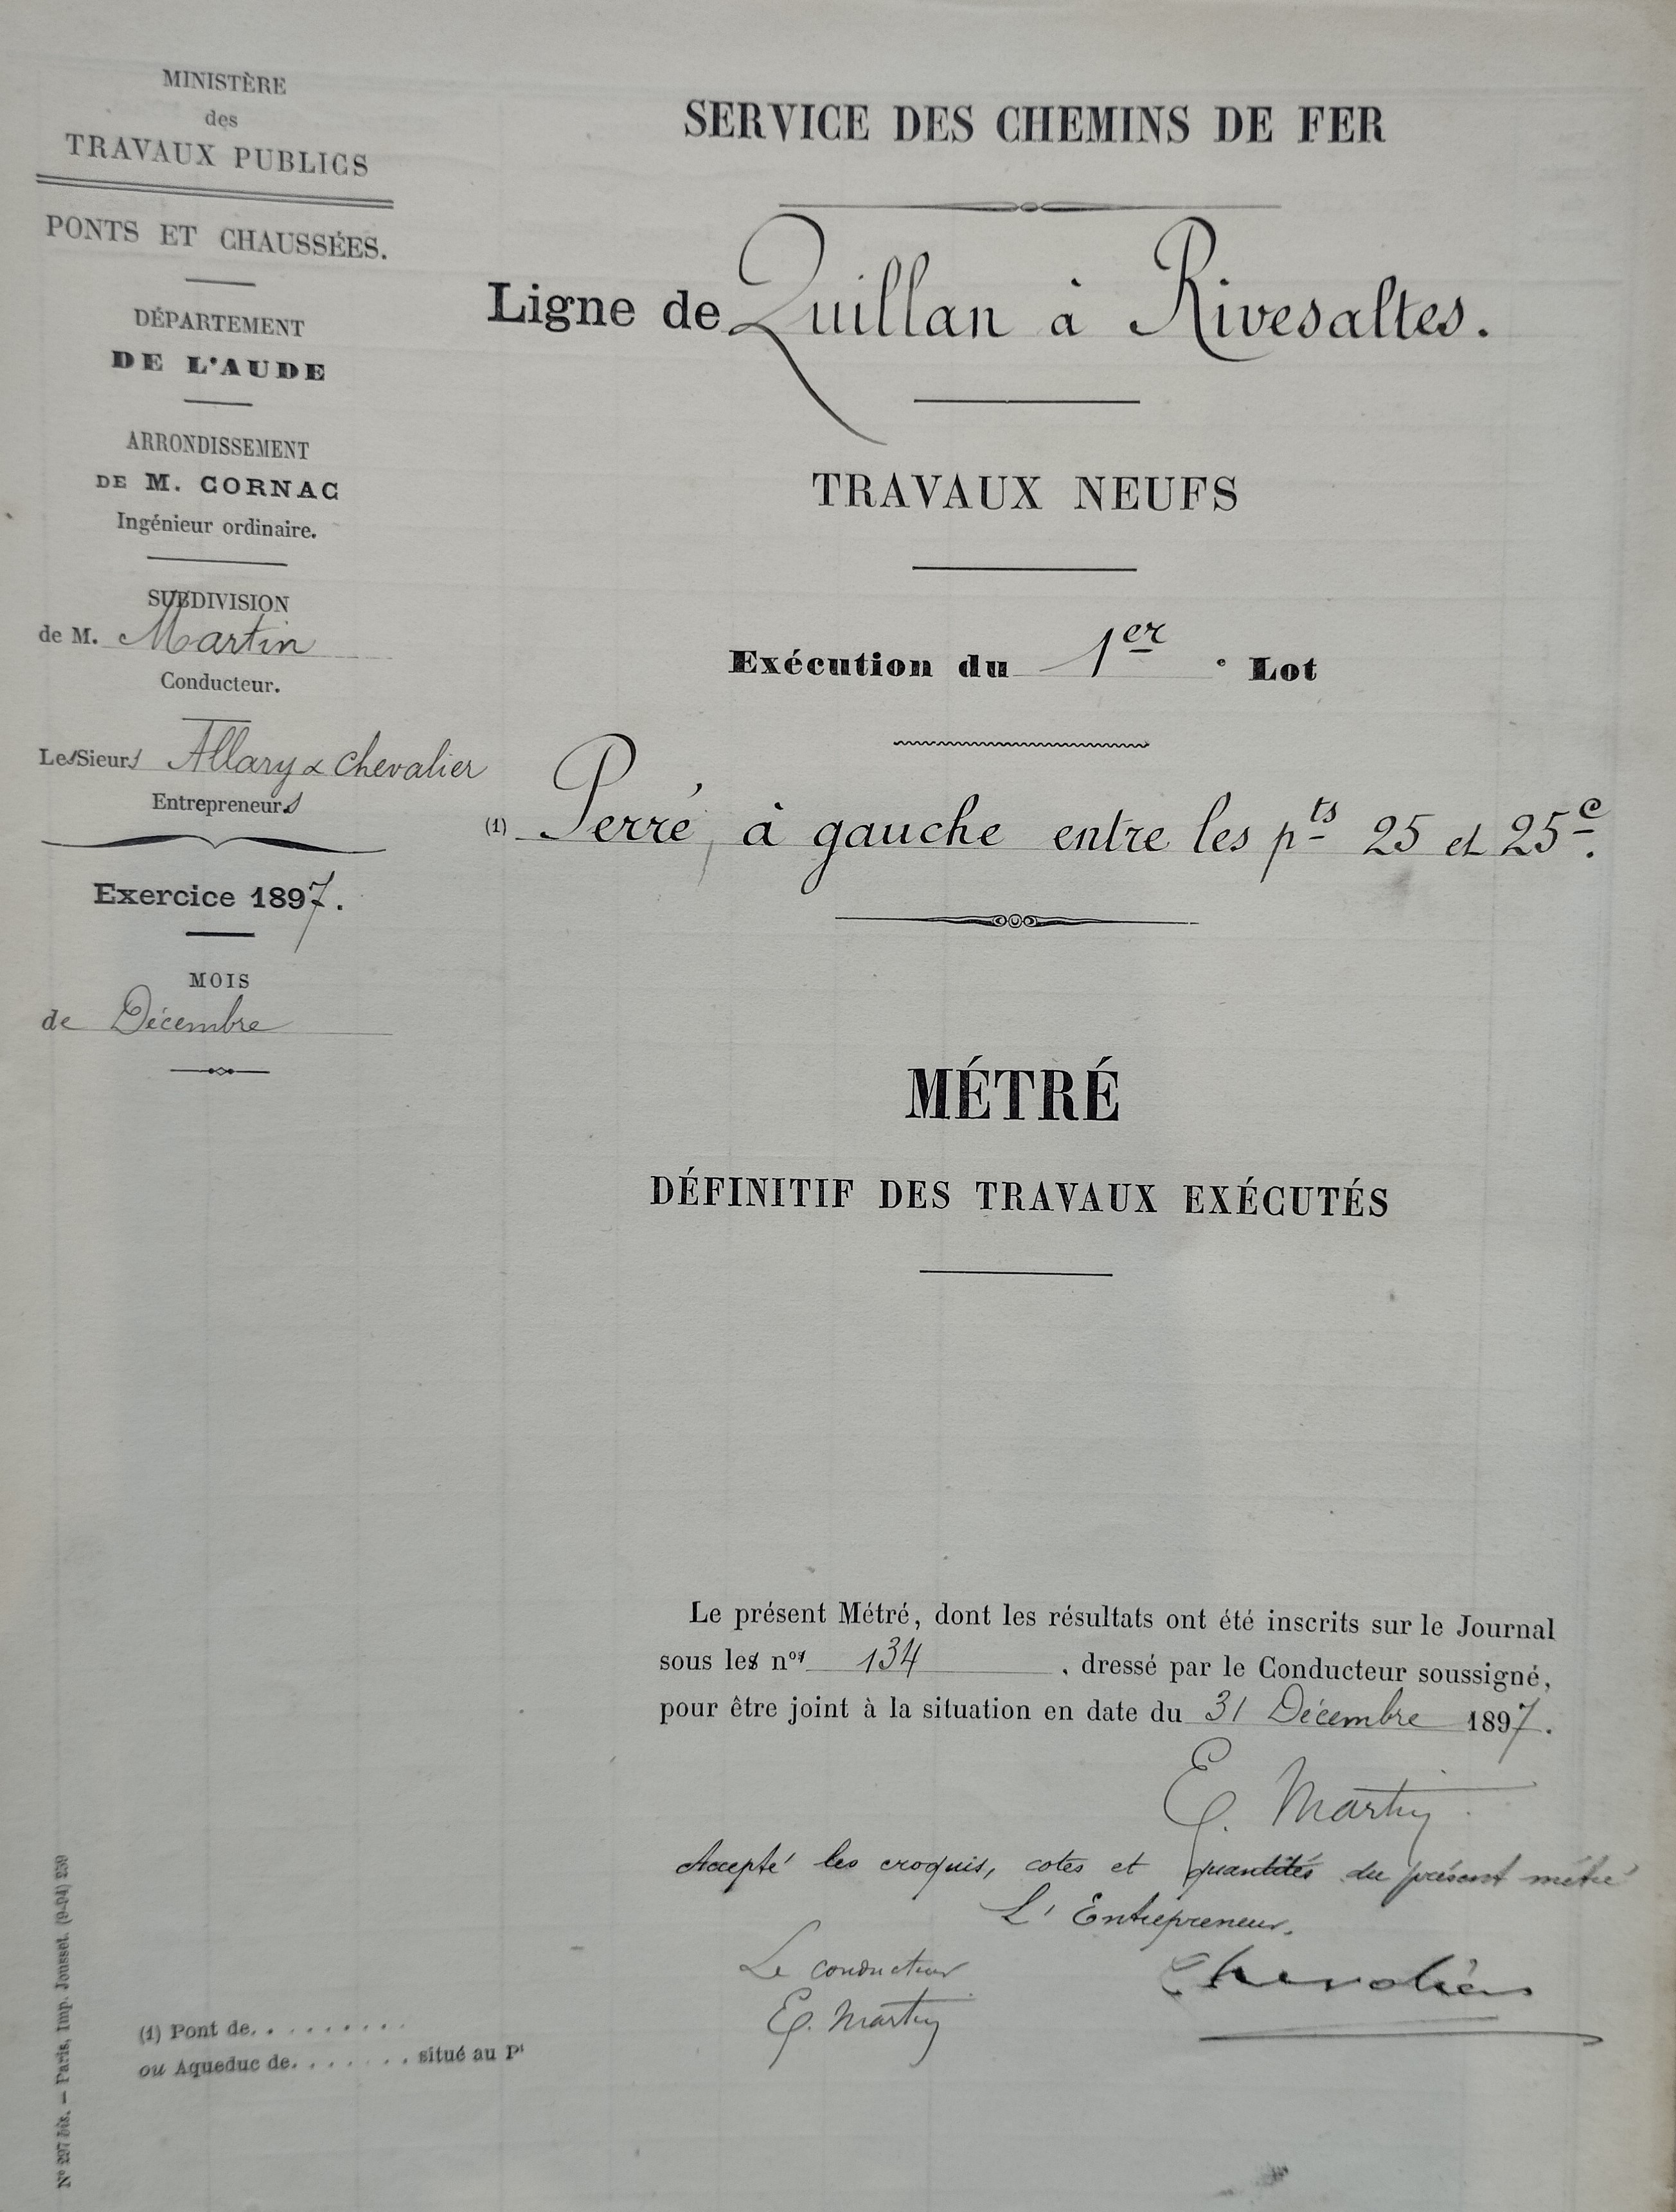 MINISTÈRE
des
TRAVAUX PUBLICS
PONTS ET CHAUSSÉES.
DÉPARTEMENT
DE L'AUDE
ARRONDISSEMENT
DE M. CORNAC
Ingénieur ordinaire.
SUBDIVISION
de M. Martin
Conducteur.
Les Sieurs Allary & Chevalier
Entrepreneurs
Exercice 1897.
MOIS
de Décembre
SERVICE DES CHEMINS DE FER
Ligne de Quillan à Rivesaltes.
TRAVAUX NEUFS
Exécution du 1er e Lot
(1) Perré, à gauche entre les pts 25 et 25e.
MÉTRÉ
DÉFINITIF DES TRAVAUX EXÉCUTÉS
Le présent Métré, dont les résultats ont été inscrits sur le Journal
sous les nos 134, dressé par le Conducteur soussigné,
pour être joint à la situation en date du 31 Décembre 1897.
E. Martin
Accepté les croquis, cotes et quantités du présent métré
L'Entrepreneur,
Le conducteur
E. Martin
Chevalier
(1) Pont de. . . . . . . . . .
ou Aqueduc de. . . . . . . situé au Pt
N° 297 bis. — Paris, Imp. Jousset. (9-94) 259